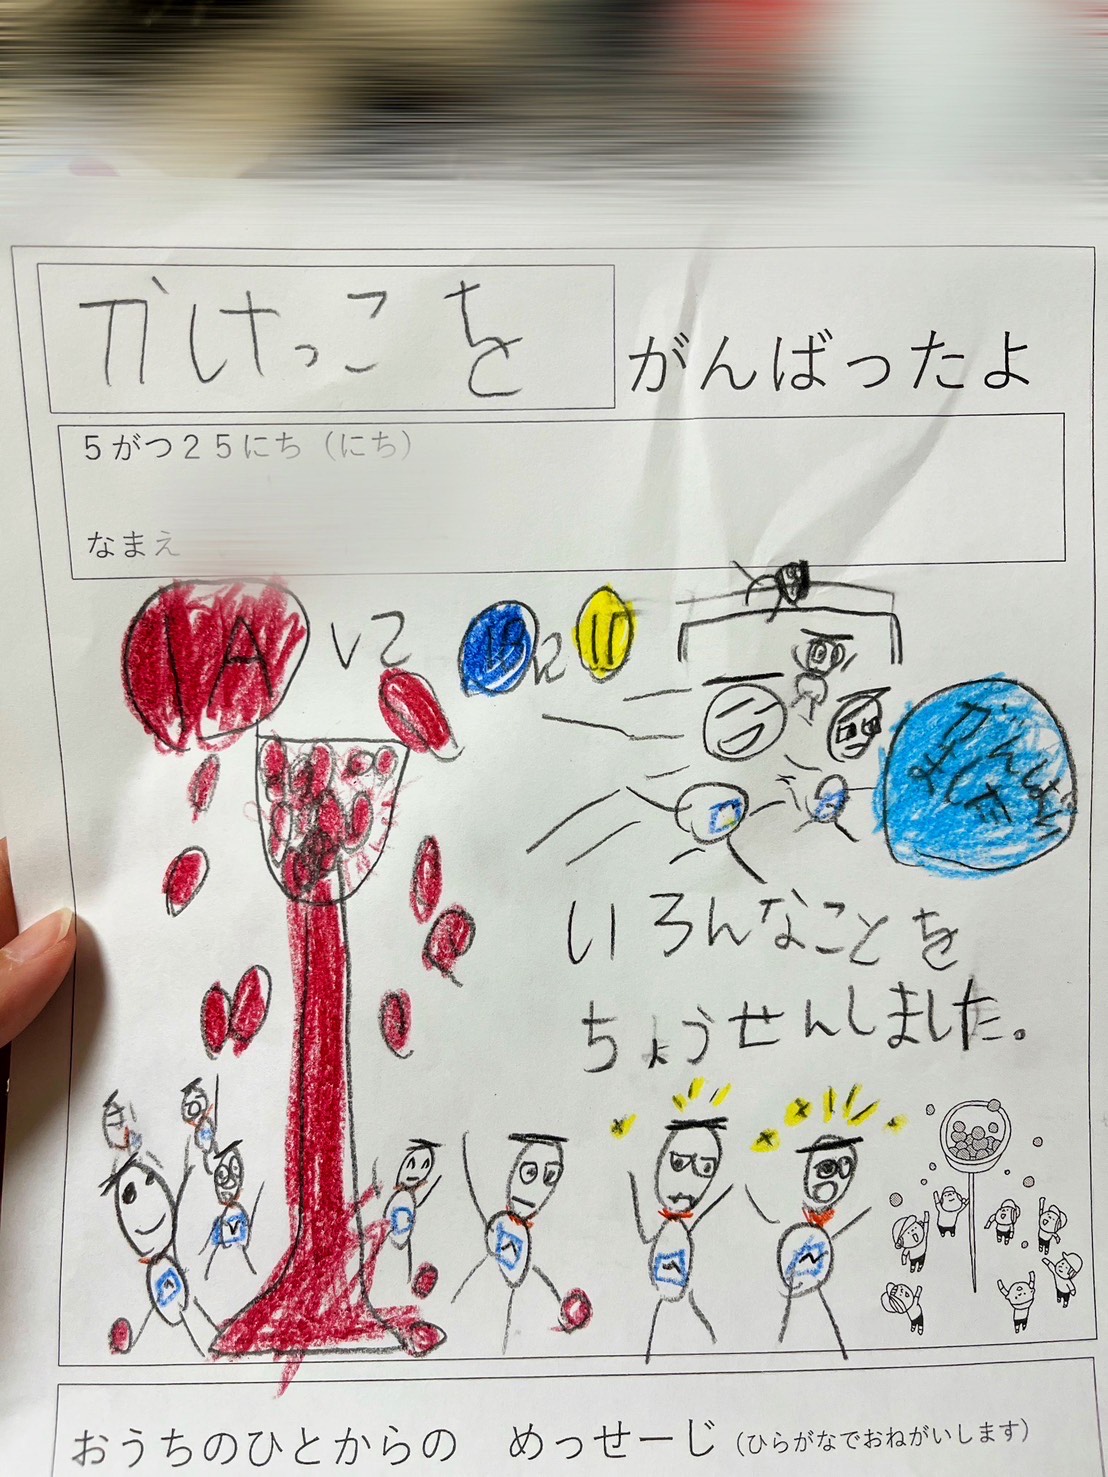 かけっこを がんばったよ
5がつ25にち（にち）
なまえ
1A
がんばれ
いろんなことを
ちょうせんしました。
おうちのひとからの めっせーじ（ひらがなでおねがいします）